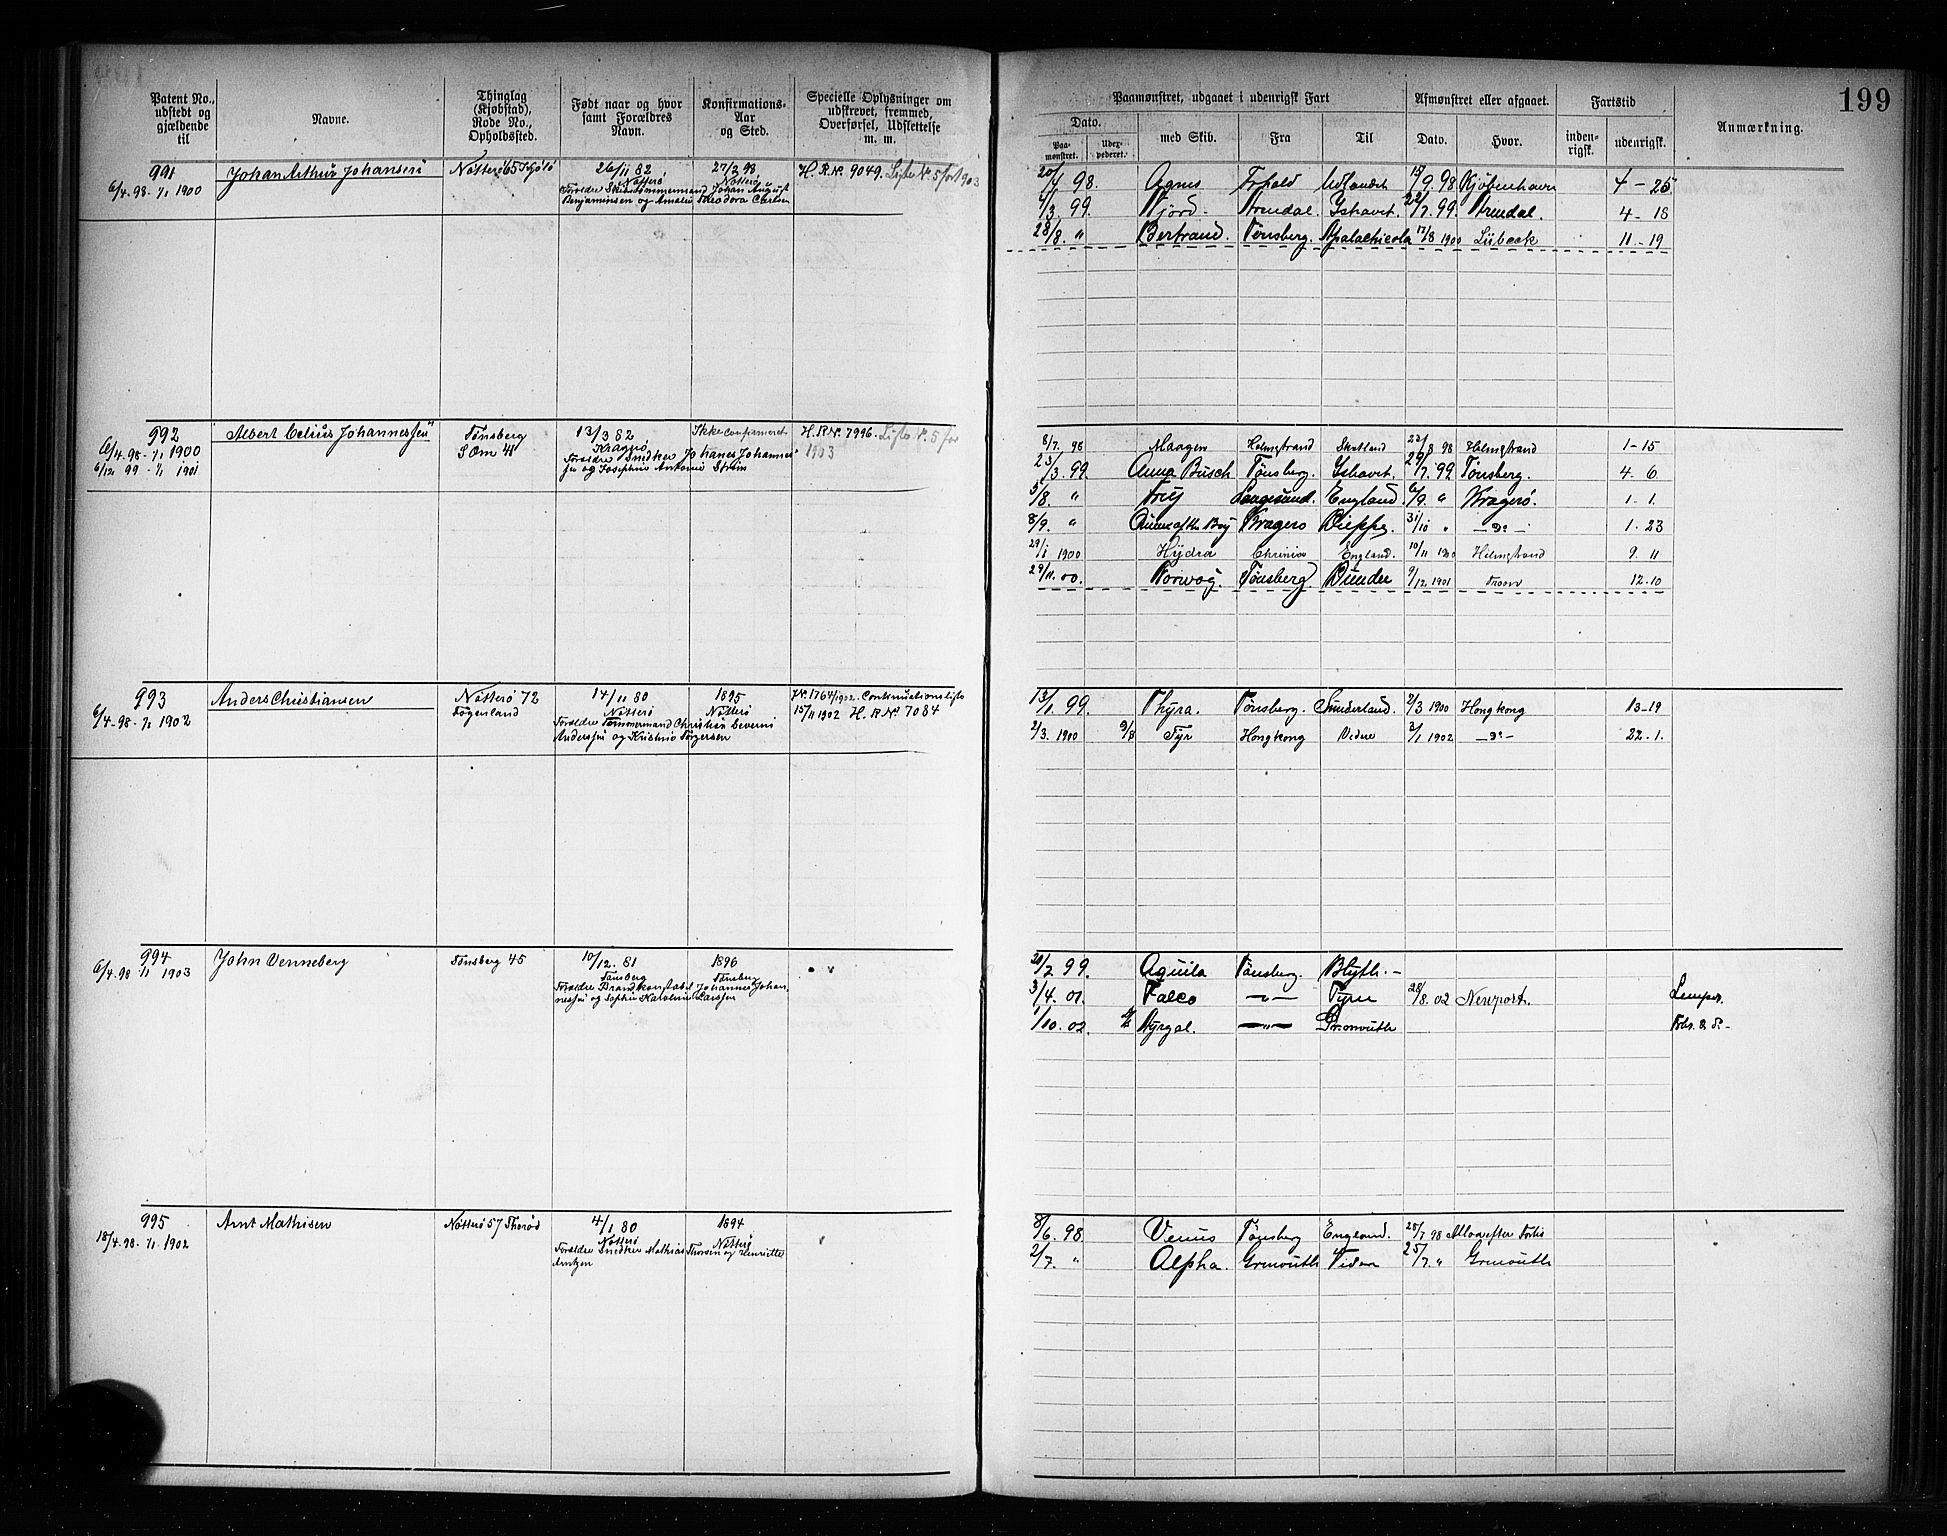 199
Patent No., udstedt og gjældende til
Navne.
Thinglag (Kjøbstad), Rode No., Opholdssted.
Født naar og hvor samt Forældres Navn.
Konfirmations-Aar og Sted.
Specielle Oplysninger om udskrevet, fremmed, Overførsel, Udslettelse m. m.
Paamønstret, udgaaet i udenrigsk Fart
Dato.
Paa-mønstret.
med Skib.
Fra
Til
Afmønstret eller afgaaet.
Dato.
Hvor.
Fartstid
inden-rigsk.
udenrigsk.
Anmærkning.
991
6/4 98 - 1/1 1900
Johan Arthur Johansen
Nøtterø 65
26/11 82
Nøtterø
27/3 98
Nøtterø
Johan August
Benjaminsen og Amalie Theodora
H. R. Nº 9049. Liste Nº 5 for 1903
20/4 98. Agnes Udlandet 15/9 98 Kjøbenhavn 4 - 25
4/3 99. Njord. Arendal. Ishavet. 22/7 99. Arendal. 4 - 18
28/8 " Bertrand. Tønsberg. Apalachicola 17/8 1900 Lübeck 11 - 19
992
6/4 98 - 1/1 1900
6/12 99 - 1/1 1901
Albert Celius Johannessen
Tønsberg
13/3 82
Kragerø
Forældre Snedker Johanes Johannes-
sen og Josephine Antonie
Ikke confirmeret
H. R. Nº 7996. Liste Nº 5 for
1903
8/7 98 Maagen Holmestrand Skotland 22/8 98 Holmestrand 1 - 15
23/3 99. Anna Busch Tønsberg. Ishavet. 29/7 99 Tønsberg. 4. 6
5/8. " Frey Langesund. England. 6/9. " Kragerø. 1. 1.
8/9. " Kragerø Dieppe. 31/10 " — Do — 1. 23
29/1 1900 Hydra England. 10/11 1900 Holmestrand 9. 11
29/11. 00. Norvæg. Tønsberg. Dundee 9/12 1901 Troon 12. 10
993
6/4 98 - 1/1 1902
Anders Christiansen
Nøtterø 72
14/11 80
Nøtterø
Forældre Tømmermand Christian Severin
Anderssen og Kristine Torgersen
1895
Nøtterø
J.Nº 1764/1902. Continuationsliste
15/11 1902 H. R. Nº 7084
13/1 99. Thyra. Tønsberg. Sunderland. 2/3 1900 Hongkong 13 - 19
2/3. 1900 Tyr Hongkong Videre 3/1 1902 — Do — 22. 1.
994
6/4 98 1/1 1903
John Venneberg
Tønsberg 45
10/12. 81
Tønsberg
Forældre Brandkonstabel Johannes Johan-
nessen og Sophie Karoline Larssen
1896
Tønsberg
20/2 99. Aquila Tønsberg. Blyth. -
3/4. 01. Falco — " — Tyne 28/8. 02 Newport.
1/10. 02. — " —
995
18/4 98 - 1/1 1902
Arnt Mathisen
Nøtterø 57
4/1 80
Nøtterø
Forældre Snedker Mathias Thorsen og Henriette
Arntzen
1894
Nøtterø
8/6. 98 Venus Tønsberg England. 25/7 98
2/7. " Alpha. Videre 25/7. "